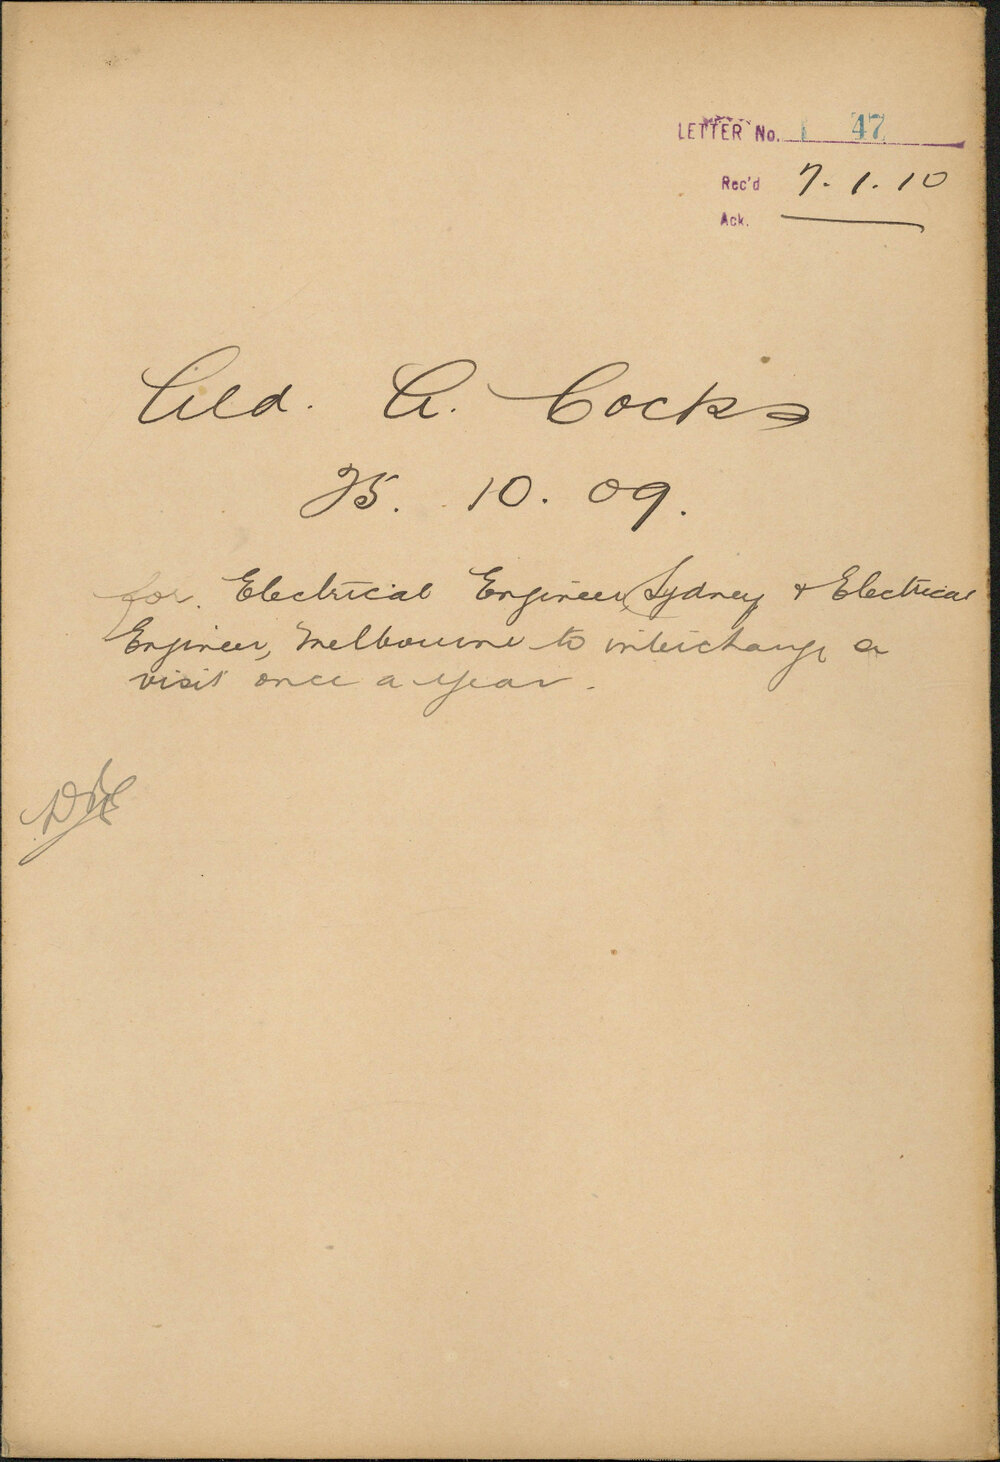 LETTER No. 1 47
Rec'd 7.1.10
Ack.
Ald. A. Cocks
25. 10. 09.
for. Electrical Engineer, Sydney & Electrical
Engineer, Melbourne to interchange a
visit once a year.